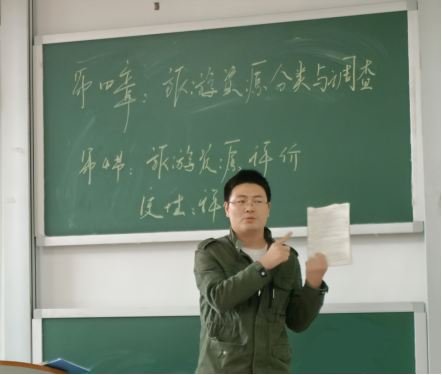 第四章：旅游资源分类与调查
第4节：旅游资源评价
定性：评